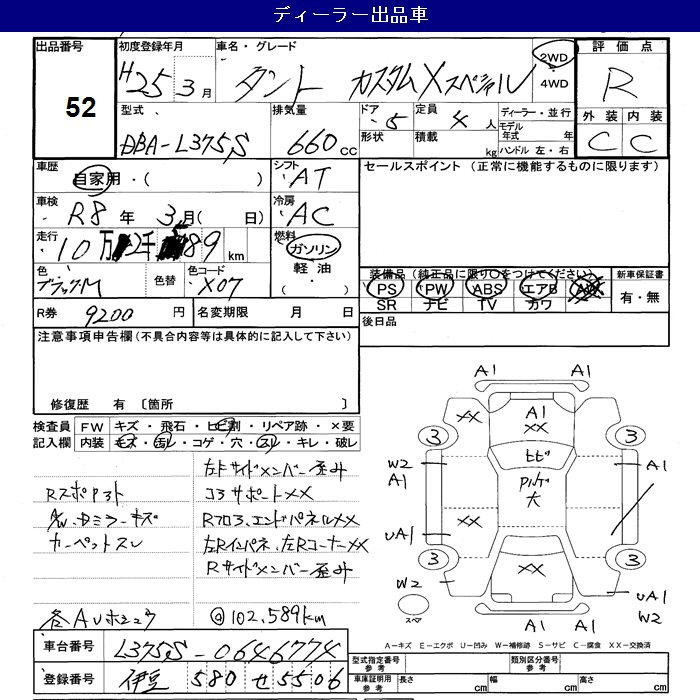 ディーラー出品車
出品番号
52
初度登録年月
H25年3月
車名・グレード
タント カスタムXスペシャル
2WD
・
4WD
評価点
R
型式
DBA-L375S
排気量
660cc
ドア・
5
形状
定員
4人
積載
kg
ディーラー・並行
モデル年式 年
ハンドル 左・右
外装 内装
C C
車歴
自家用・( )
シフト
AT
セールスポイント (正常に機能するものに限ります)
車検
R8年 3月( 日)
冷房
AC
走行
10万 2千 589 km
燃料
ガソリン
・
軽油
・
( )
色
ブラックM
色替
色コード
X07
装備品 (純正品に限り○をつけてください)
PS PW ABS エアB AW
SR ナビ TV カワ
新車保証書
有・無
R券 9200 円
名変期限 月 日
後日品
注意事項申告欄(不具合内容等は具体的に記入して下さい)
修復歴 有 〔箇所 〕
検査員
記入欄
FW キズ・飛石・ヒビ割・リペア跡・×要
内装 キズ・汚レ・コゲ・穴・スレ・キレ・破レ
左Fサイドメンバー歪み
Rスポアヨト
コアサポートXX
A/W・Dミラーキズ
Rフロア、エンドパネルXX
カーペットスレ
左Rインパネ、左RコーナーXX
Rサイドメンバー歪み
各AUホシュウ
@102,589km
A1 A1
XX A1 XX
3 3
W2 A1
ヒビ
A1
P小ルーフ大
XX
UA1
3 3
W2
XX
UA1 W2
スペア
A1 A1
A-キズ E-エクボ U-凹み W-補修跡 S-サビ C-腐食 XX-交換済
車台番号 L375S-0646774
登録番号 伊豆 580 せ 5506
型式指定番号
参考
類別区分番号
参考
車庫証明用
参考
長さ cm 幅 cm 高さ cm